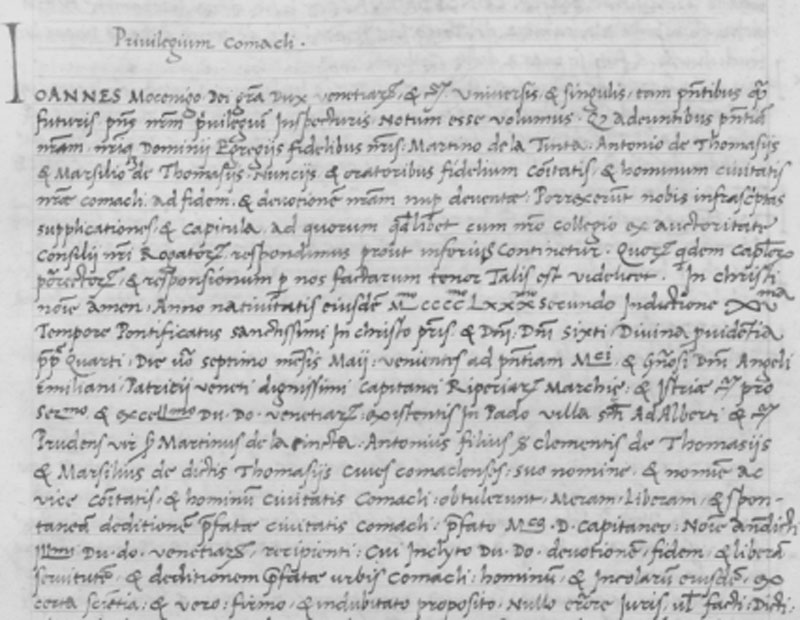 Priuilegium Comacli.
IOANNES Mocenigo Dei gr̃a Dux venetiarꝝ & cꝫ. Vniuersis & singulis, tam pñtibus qȝ
futuris pñs nr̃m priuilegiũ Inspecturis. Notum esse volumus. Qȝ adeuntibus pñtiã
nr̃am Dominij Egregijs fidelibus nr̃is. Martino de la Tinta. Antonio de Thomasijs
& Marsilio de Thomasijs. Nuncijs & oratoribus fidelium cõitatis, & hominum ciuitatis
nr̃æ comacli. ad fidem, & deuotionẽ nr̃am nup deuentæ. Porrexerunt nobis infrasc̃ptas
supplicationes, & capitula, ad quorum qdlibet cum nr̃o collegio ex auctoritate
Consilij nr̃i Rogatorꝝ, respondimus prout inferius Continetur. Quorꝝ qdem caplorꝝ
porrectorꝝ, & responsionum p nos factarum tenor Talis est videlicet. In christi
noĩe amen. Anno natiuitatis eiusdẽ Mmo cccc LXXX secundo Indictione XVma
Tempore Pontificatus sanctissimi In christo pr̃is & Dñi, Dñi Sixti, Diuina puidẽtia
pp Quarti. Die vo septimo mẽsis Maij: venientes ad pñtiam Mci. & Gñosi Dñi Angeli
emiliani. Patricij veneti dignissimi capitanei Riperiarꝝ Marchiẽ, & Istriæ cꝫ pro
Sermo, & excellmo Du. Do. venetiarꝝ. existentis In Pado villa sñ Adalberti & cꝫ
Prudens vir Martinus de la cincta. Antonius filius Clementis de Thomasijs
& Marsilius de dictis Thomasijs Ciues comaclensis, suo nomine, & nomine ac
vice cõitatis, & hominũ ciuitatis Comacli. obtulerunt Meram, liberam, & spon-
taneã deditionẽ pfatæ ciuitatis comacli. pfato Mag. D. Capitaneo. Noĩe andicti
Illmi Du. do. venetiarꝝ, recipienti. Cui Inclyto Du. Do. deuotionẽ, fidem, & liberã
seruitutẽ, & deditionem pfatæ vrbis Comacli. hominũ, & Incolarũ eiusdẽ, ex
certa scientia, & vero, firmo, & indubitato proposito. Nullo errore Iuris, vl facti. Dicti